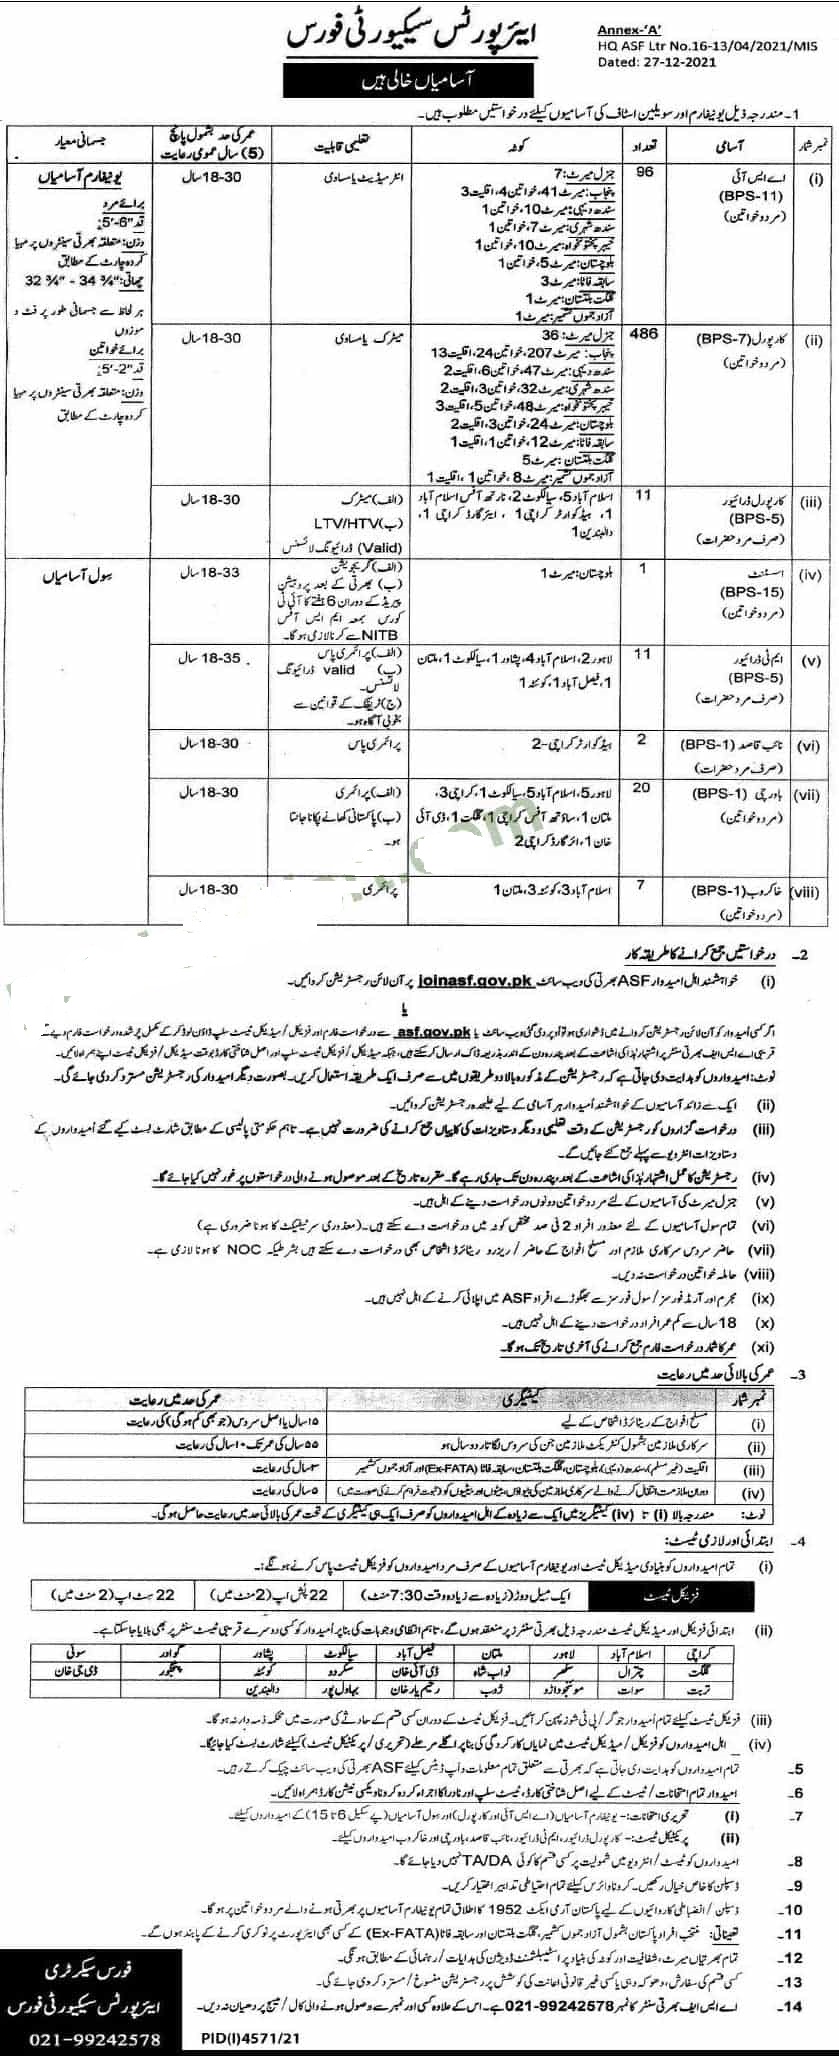 ایئرپورٹس سیکیورٹی فورس
آسامیاں خالی ہیں
Annex-'A'
HQ ASF Ltr No.16-13/04/2021/MIS
Dated: 27-12-2021
1- مندرجہ ذیل یونیفارم اور سویلین اسٹاف کی آسامیوں کیلئے درخواستیں مطلوب ہیں۔
نمبر شمار | آسامی | تعداد | کوٹہ | تعلیمی قابلیت | عمر کی حد بشمول پانچ (5) سال عمومی رعایت | جسمانی معیار
(i) | اے ایس آئی (BPS-11) (مرد و خواتین) | 96 | انٹرمیڈیٹ یا مساوی | 18-30 سال
جنرل میرٹ: 7
پنجاب: میرٹ 41، خواتین 4، اقلیت 3
سندھ دیہی: میرٹ 10، خواتین 1
سندھ شہری: میرٹ 7، خواتین 1
خیبر پختونخواہ: میرٹ 10، خواتین 1
بلوچستان: میرٹ 5، خواتین 1
سابقہ فاٹا: میرٹ 3
گلگت بلتستان: میرٹ 1
آزاد جموں کشمیر: میرٹ 1
یونیفارم آسامیاں
برائے مرد
قد "6-'5:
وزن: متعلقہ بھرتی سینٹروں پر مہیا
کردہ چارٹ کے مطابق
چھاتی: "¾ 34 - "¾ 32
ہر لحاظ سے جسمانی طور پر فٹ و
موزوں
برائے خواتین
قد "2-'5:
وزن: متعلقہ بھرتی سینٹروں پر مہیا
کردہ چارٹ کے مطابق
(ii) | کارپورل (BPS-7) (مرد و خواتین) | 486 | میٹرک یا مساوی | 18-30 سال
جنرل میرٹ: 36
پنجاب: میرٹ 207، خواتین 24، اقلیت 13
سندھ دیہی: میرٹ 47، خواتین 6، اقلیت 2
سندھ شہری: میرٹ 32، خواتین 3، اقلیت 2
خیبر پختونخواہ: میرٹ 48، خواتین 5، اقلیت 3
بلوچستان: میرٹ 24، خواتین 3، اقلیت 2
سابقہ فاٹا: میرٹ 12، خواتین 1، اقلیت 1
گلگت بلتستان: میرٹ 5
آزاد جموں کشمیر: میرٹ 8، خواتین 1، اقلیت 1
(iii) | کارپورل ڈرائیور (BPS-5) (صرف مرد حضرات) | 11 | 18-30 سال
اسلام آباد 5، سیالکوٹ 2، نارتھ آفس اسلام آباد
1، ہیڈ کوارٹر کراچی 1، ایئر گارڈ کراچی 1،
دالبندین 1
(الف) میٹرک
(ب) LTV/HTV
(Valid) ڈرائیونگ لائسنس
سول آسامیاں
(iv) | اسسٹنٹ (BPS-15) (مرد و خواتین) | 1 | بلوچستان: میرٹ 1 | 18-33 سال
(الف) گریجویشن
(ب) بھرتی کے بعد پروبیشن
پیریڈ کے دوران 6 ہفتے کا آئی ٹی
کورس بمعہ ایم ایس آفس
NITB سے کرنا لازمی ہوگا۔
(v) | ایم ٹی ڈرائیور (BPS-5) (صرف مرد حضرات) | 11 | 18-35 سال
لاہور 2، اسلام آباد 4، پشاور 1، سیالکوٹ 1، ملتان
1، فیصل آباد 1، کوئٹہ 1
(الف) پرائمری پاس
(ب) valid ڈرائیونگ
لائسنس۔
(ج) ٹریفک کے قوانین سے
بخوبی آگاہ ہو۔
(vi) | نائب قاصد (BPS-1) (صرف مرد حضرات) | 2 | ہیڈ کوارٹر کراچی-2 | پرائمری پاس | 18-30 سال
(vii) | باورچی (BPS-1) (مرد و خواتین) | 20 | 18-30 سال
لاہور 5، اسلام آباد 5، سیالکوٹ 1، کراچی 3،
ملتان 1، ساؤتھ آفس کراچی 1، گلگت 1، ڈی آئی
خان 1، ائر گارڈ کراچی 2
(الف) پرائمری
(ب) پاکستانی کھانے پکانا جانتا
ہو۔
(viii) | خاکروب (BPS-1) (مرد و خواتین) | 7 | اسلام آباد 3، کوئٹہ 3، ملتان 1 | پرائمری | 18-30 سال
.com
2- درخواستیں جمع کرانے کا طریقہ کار
(i) خواہشمند اہل امیدوار ASF بھرتی کی ویب سائٹ joinasf.gov.pk پر آن لائن رجسٹریشن کروائیں۔
یا
اگر کسی امیدوار کو آن لائن رجسٹریشن کروانے میں دشواری ہو تو اوپر دی گئی ویب سائٹ یا asf.gov.pk سے درخواست فارم اور فزیکل/میڈیکل ٹیسٹ سلپ ڈاؤن لوڈ کر کے مکمل پُر شدہ درخواست فارم دیے گئے
قریبی اے ایس ایف بھرتی سنٹر پر اشتہار ہذا کی اشاعت کے بعد پندرہ دن کے اندر بذریعہ ڈاک ارسال کر سکتے ہیں، جبکہ میڈیکل/فزیکل ٹیسٹ سلپ اور اصل شناختی کارڈ بوقت میڈیکل/فزیکل ٹیسٹ اپنے ہمراہ لائیں۔
نوٹ: امیدواروں کو ہدایت دی جاتی ہے کہ رجسٹریشن کے مذکورہ بالا دو طریقوں میں سے صرف ایک طریقہ استعمال کریں۔ بصورت دیگر امیدوار کی رجسٹریشن مسترد کر دی جائے گی۔
(ii) ایک سے زائد آسامیوں کے خواہشمند امیدوار ہر آسامی کے لیے علیحدہ رجسٹریشن کروائیں۔
(iii) درخواست گزاروں کو رجسٹریشن کے وقت تعلیمی و دیگر دستاویزات کی کاپیاں جمع کرانے کی ضرورت نہیں ہے۔ تاہم حکومتی پالیسی کے مطابق شارٹ لسٹ کیے گئے امیدواروں کے
دستاویزات انٹرویو سے پہلے جمع کئے جائیں گے۔
(iv) رجسٹریشن کا عمل اشتہار ہذا کی اشاعت کے بعد پندرہ دن تک جاری رہے گا۔ مقررہ تاریخ کے بعد موصول ہونے والی درخواستوں پر غور نہیں کیا جائے گا۔
(v) جنرل میرٹ کی آسامیوں کے لئے مرد و خواتین دونوں درخواست دینے کے اہل ہیں۔
(vi) تمام سول آسامیوں کے لئے معذور افراد 2 فی صد مختص کوٹہ میں درخواست دے سکتے ہیں۔ (معذوری سرٹیفکیٹ کا ہونا ضروری ہے)
(vii) حاضر سروس سرکاری ملازم اور مسلح افواج کے حاضر / ریزرو ریٹائرڈ اشخاص بھی درخواست دے سکتے ہیں بشرطیکہ NOC کا ہونا لازمی ہے۔
(viii) حاملہ خواتین درخواست نہ دیں۔
(ix) مجرم اور آرمڈ فورسز / سول فورسز سے بھگوڑے افراد ASF میں اپلائی کرنے کے اہل نہیں ہیں۔
(x) 18 سال سے کم عمر افراد درخواست دینے کے اہل نہیں ہیں۔
(xi) عمر کا شمار درخواست فارم جمع کرانے کی آخری تاریخ تک ہوگا۔
3- عمر کی بالائی حد میں رعایت
نمبر شمار | کیٹیگری | عمر کی حد میں رعایت
(i) | مسلح افواج کے ریٹائرڈ اشخاص کے لیے | ۱۵ سال یا اصل سروس (جو بھی کم ہوگی) کی رعایت
(ii) | سرکاری ملازمین بشمول کنٹریکٹ ملازمین جن کی سروس لگاتار دو سال ہو | ۵۵ سال کی عمر تک ۱۰ سال کی رعایت
(iii) | اقلیت (غیر مسلم)، سندھ (دیہی)، بلوچستان، گلگت بلتستان، سابقہ فاٹا (Ex-FATA) اور آزاد جموں کشمیر | ۳ سال کی رعایت
(iv) | دوران ملازمت انتقال کرنے والے سرکاری ملازمین کی بیواؤں، بیٹوں اور بیٹیوں کو (ثبوت فراہم کرنے کی صورت میں) | ۵ سال کی رعایت
نوٹ: مندرجہ بالا (i) تا (iv) کیٹیگریز میں ایک سے زیادہ کے اہل امیدواروں کو صرف ایک ہی کیٹیگری کے تحت عمر کی بالائی حد میں رعایت حاصل ہوگی۔
4- ابتدائی اور لازمی ٹیسٹ:
(i) تمام امیدواروں کو بنیادی میڈیکل ٹیسٹ اور یونیفارم آسامیوں کے صرف مرد امیدواروں کو فزیکل ٹیسٹ پاس کرنے ہونگے:
فزیکل ٹیسٹ | ایک میل دوڑ (زیادہ سے زیادہ وقت 7:30 منٹ) | 22 پش اپ (2 منٹ میں) | 22 سٹ اپ (2 منٹ میں)
(ii) ابتدائی فزیکل اور میڈیکل ٹیسٹ مندرجہ ذیل بھرتی سنٹرز پر منعقد ہوں گے، تاہم انتظامی وجوہات کی بنا پر امیدوار کو کسی دوسرے قریبی ٹیسٹ سنٹر پر بھی بلایا جا سکتا ہے۔
کراچی | اسلام آباد | لاہور | ملتان | فیصل آباد | سیالکوٹ | پشاور | گوادر | سوئی
گلگت | چترال | سکھر | نواب شاہ | ڈی آئی خان | سکردو | کوئٹہ | پنجگور | ڈی جی خان
تربت | سوات | موہنجوداڑو | ژوب | رحیم یار خان | بہاول پور | دالبندین
(iii) فزیکل ٹیسٹ کیلئے تمام امیدوار جوگر/پی ٹی شوز پہن کر آئیں۔ فزیکل ٹیسٹ کے دوران کسی قسم کے حادثے کی صورت میں محکمہ ذمہ دار نہ ہوگا۔
(iv) اہل امیدواروں کو فزیکل/میڈیکل ٹیسٹ میں نمایاں کارکردگی کی بنا پر اگلے مرحلے (تحریری/پریکٹیکل ٹیسٹ) کیلئے شارٹ لسٹ کیا جائیگا۔
5- تمام امیدواروں کو ہدایت دی جاتی ہے کہ بھرتی سے متعلق تمام معلومات و اَپ ڈیٹس کیلئے ASF بھرتی کی ویب سائٹ چیک کرتے رہیں۔
6- امیدوار تمام امتحانات/ٹیسٹ کے لیے اصل شناختی کارڈ، ٹیسٹ سلپ اور نادرا کا اجراء کردہ کرونا ویکسی نیشن کارڈ ہمراہ لائیں۔
7- (i) تحریری امتحانات:- یونیفارم آسامیاں (اے ایس آئی اور کارپورل) اور سول آسامیاں (پے سکیل 6 تا 15) کے امیدواروں کیلئے۔
(ii) پریکٹیکل ٹیسٹ:- کارپورل ڈرائیور، ایم ٹی ڈرائیور، نائب قاصد، باورچی اور خاکروب امیدواروں کیلئے۔
8- امیدواروں کو ٹیسٹ/انٹرویو میں شمولیت پر کسی قسم کا کوئی TA/DA نہیں دیا جائے گا۔
9- ڈسپلن کا خاص خیال رکھیں۔ کرونا وائرس کیلئے تمام احتیاطی تدابیر اختیار کریں۔
10- ڈسپلن/انضباطی کاروائیوں کے لیے پاکستان آرمی ایکٹ 1952 کا اطلاق تمام یونیفارم آسامیوں پر بھرتی ہونے والے مرد و خواتین پر ہوگا۔
11- تعیناتی: منتخب افراد پاکستان بشمول آزاد جموں کشمیر، گلگت بلتستان اور سابقہ فاٹا (Ex-FATA) کے کسی بھی ایئرپورٹ پر نوکری کرنے کے پابند ہوں گے۔
12- تمام بھرتیاں میرٹ، شفافیت اور کوٹہ کی بنیاد پر اسٹیبلشمنٹ ڈویژن کی ہدایات/رہنمائی کے مطابق ہونگی۔
13- کسی قسم کی سفارش، دھوکہ دہی یا کسی غیر قانونی اعانت کی کوشش پر رجسٹریشن منسوخ/مسترد کر دی جائے گی۔
14- اے ایس ایف بھرتی سنٹر کا نمبر 021-99242578 ہے۔ اس کے علاوہ کسی اور نمبر سے موصول ہونے والی کال/میسج پر دھیان نہ دیں۔
فورس سیکرٹری
ایئرپورٹس سیکیورٹی فورس
021-99242578
PID(I)4571/21